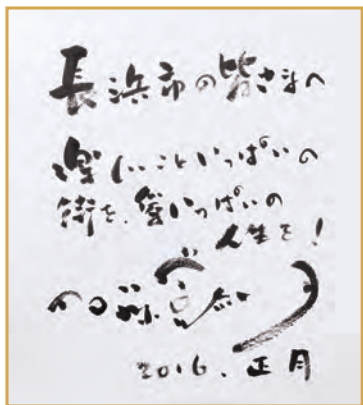 長浜市の皆さまへ
楽しいこといっぱいの
街を、いっぱいの
人生を!
2016. 正月